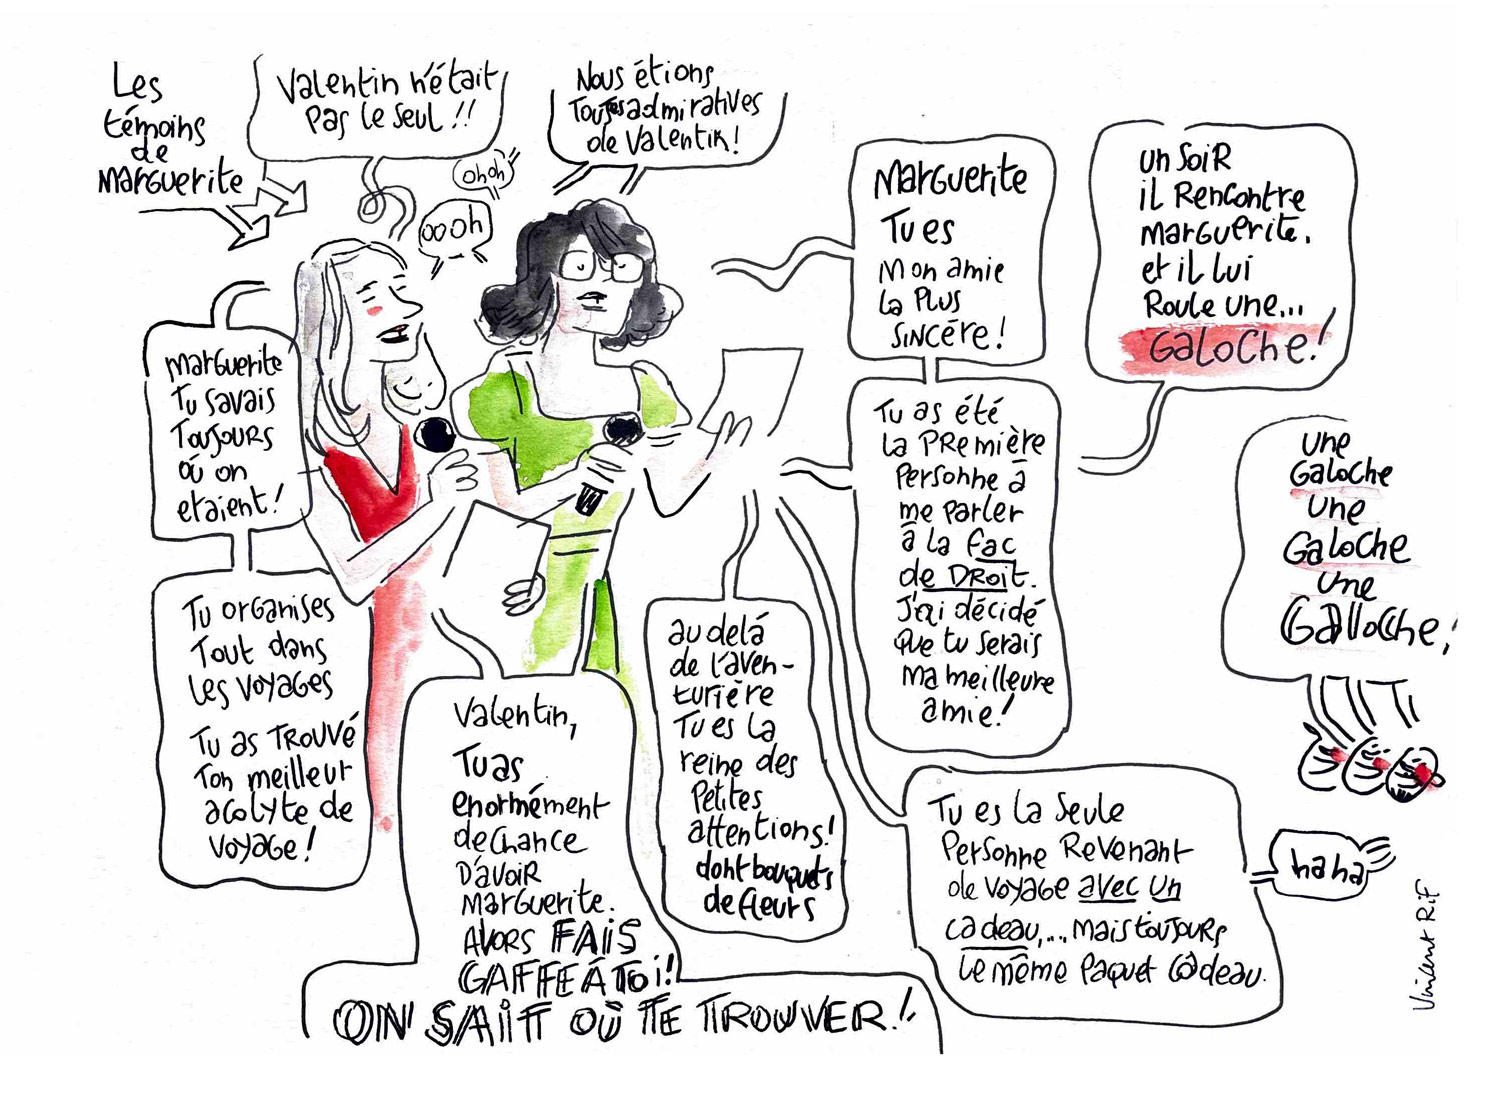 Les
témoins
de
Marguerite
Valentin n'était
pas le seul !!
ohoh
oooh
Nous étions
toutes admiratives
de Valentin !
Marguerite
Tu es
mon amie
la plus
sincère !
un soir
il rencontre
Marguerite.
et il lui
roule une...
GaLoche !
Marguerite
tu savais
toujours
où on
etaient !
Tu as été
la première
personne à
me parler
à la fac
de DROIT.
J'ai décidé
que tu serais
ma meilleure
amie !
une
Galoche
une
Galoche
une
Galloche !
Tu organises
tout dans
les voyages
Tu as trouvé
ton meilleur
acolyte de
voyage !
Valentin,
Tu as
enormément
de chance
d'avoir
Marguerite.
Alors FAIS
GAFFE À TOI !
ON SAIT OÙ TE TROUVER !
au delà
de l'aven-
turière
Tu es la
reine des
petites
attentions !
dont bouquets
de fleurs
Tu es la seule
personne revenant
de voyage avec un
cadeau,... mais toujours
le même paquet cadeau.
haha
Vincent Rif